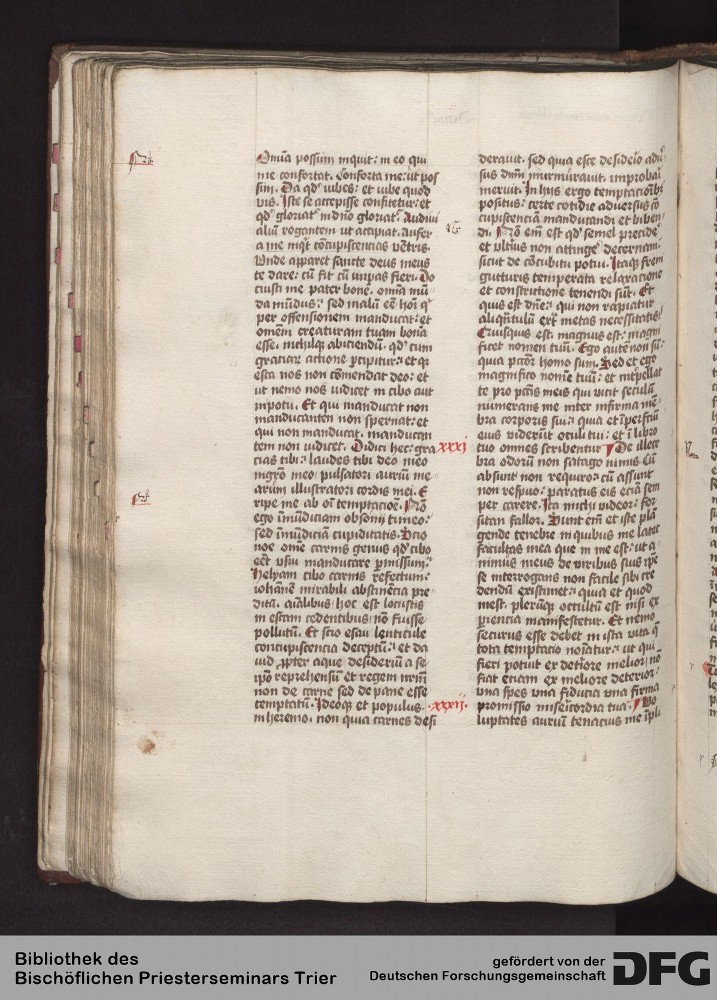 Omnia possum inquit: in eo qui
me confortat. Conforta me: ut pos
sim. Da qđ iubes: et iube quod
vis. Iste se accepisse confitetur: et
qđ gloriat̄ in dño gloriat̄. Audiui
aliū rogantem ut accipiat. Aufer
a me inqt̄ cōcupiscencias vētris.
Vnde apparet sancte deus meus
te dare: cū fit cū imperas fieri. Do
cuisti me pater bone. omīa mū
da mūdis: sed malū eē hoi q̄
per offensionem manducat: et
omēm creaturam tuam bonā
esse. nichilqꝫ abiciendū. qđ cum
graciarū actione ꝑcipitur: et qꝫ
esca nos non cōmendat deo: et
ut nemo nos iudicet in cibo aut
in potu. Et qui manducat non
manducantem non spernat: et
qui non manducat. manducan
tem non iudicet. Didici hec: gra
cias tibi: laudes tibi deo meo
mgrō meo pulsatori auriū me
arūm illustratori cordis mei. E
ripe me ab oī temptacioē. Nō
ego īmūdiciam obsonij timeo:
sed īmūdiciā cupiditatis. Scio
noe omē carnis genus qđ cibo
eēt vsui manducare ꝑmissum.
Helyam cibo carnis refectum.
iohānē mirabili abstinēcia pre
ditū. aīalibus hoc est locustis
in escam cedentibus nō fuisse
pollutū. Et scio esau lenticule
concupiscencia deceptū: et da
uid ꝓpter aque desideriū a se
ip̄o reprehēsū et regem nr̄m
non de carne sed de pane esse
temptatū. Ideoqꝫ et populus
in heremo. non quia carnes desi
derauit. sed quia esce desiderio aduer
sus dn̄m murmurauit. improbari
meruit. In hijs ergo temptacionibꝫ
positus: certo cotidie aduersus cō
cupiscenciam manducandi et biben
di. Nō em̄ est qđ semel precidere
et vlterius non attingere decernam:
sicut de cōcubitu potui. Itaqꝫ frem
gutturis temperata relaxacione
et constrictione tenendi sūt. Et
quis est dn̄e: qui non rapiatur
aliqn̄tulū ext̄ metas necessitatis:
Quisquis est. magnus est: magni
ficet nomen tuū. Ego autē non sū:
quia pctōr homo sum. Sed et ego
magnifico nomē tuū: et intꝑellat
te pro pctīs meis qui vicit seculū
numerans me inter infirma mē
bra corporis sui: quia et īperfectū
eius viderūt oculi tui: et ī libro
xxxi tuo omnes scribentur De illece
bra odorū non satago nimis. Cū
absunt non requiro: cū assunt
non respuo: paratus eis eciā sem
per carere. Ita michi videor: for
sitan fallor. Sunt em̄ et iste plā
gende tenebre in quibus me latet
facultas mea que in me est: ut a
nimus meus de viribus suis ip̄e
se interrogans non facile sibi cre
dendū existimet: quia et quod
inest. plerūqꝫ occultū est nisi ex
ꝑiencia manifestetur. Et nemo
securus esse debet in ista vita q̄
tota temptacio noīatur: ut qui
fieri potuit ex deteriore melior. nō
fiat eciam ex meliore deterior:
vna spes vna fiducia vna firma
xxxij. promissio misericordia tua. Vo
luptates auriū tenacius me īpli
Bibliothek des
Bischöflichen Priesterseminars Trier
gefördert von der
Deutschen Forschungsgemeinschaft
DFG